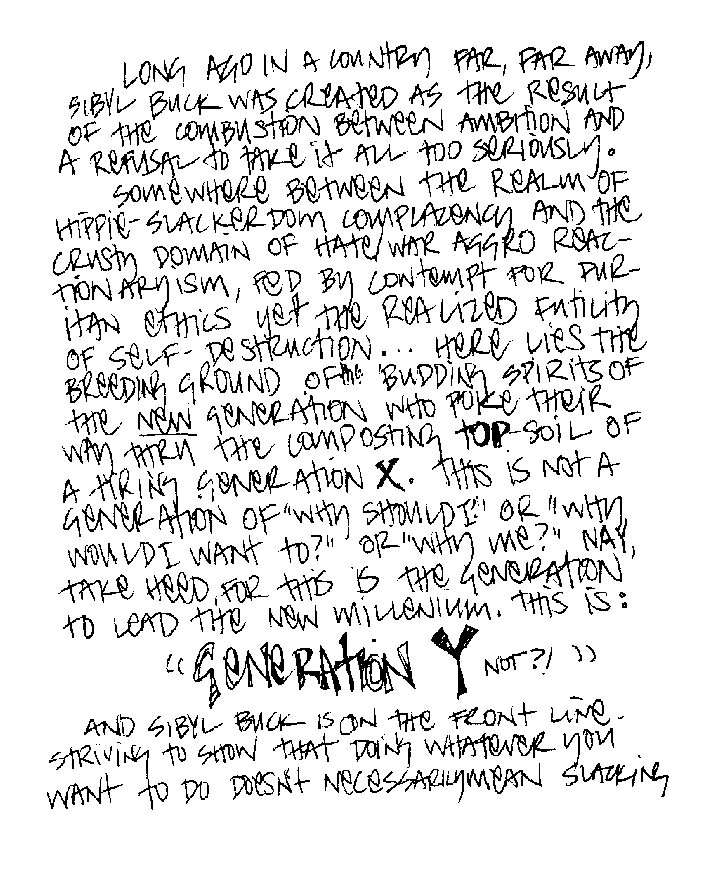 LONG AGO IN A COUNTRY FAR, FAR AWAY,
SIBYL BUCK WAS CREATED AS THE RESULT
OF THE COMBUSTION BETWEEN AMBITION AND
A REFUSAL TO TAKE IT ALL TOO SERIOUSLY.
SOMEWHERE BETWEEN THE REALM OF
HIPPIE-SLACKERDOM COMPLAZENCY AND THE
CRUSTY DOMAIN OF HATE/WAR AGGRO REAC-
TIONARYISM, FED BY CONTEMPT FOR PUR-
ITAN ETHICS YET THE REALIZED FUTILITY
OF SELF-DESTRUCTION... HERE LIES THE
BREEDING GROUND OF THE BUDDING SPIRITS OF
THE NEW GENERATION WHO POKE THEIR
WAY THRU THE COMPOSTING TOP-SOIL OF
A TIRING GENERATION X. THIS IS NOT A
GENERATION OF "WHY SHOULD I?" OR "WHY
WOULD I WANT TO?" OR "WHY ME?" NAY,
TAKE HEED, FOR THIS IS THE GENERATION
TO LEAD THE NEW MILLENIUM. THIS IS:
"GENERATION Y NOT?!"
AND SIBYL BUCK IS ON THE FRONT LINE-
STRIVING TO SHOW THAT DOING WHATEVER YOU
WANT TO DO DOESN'T NECESSARILY MEAN SLACKING